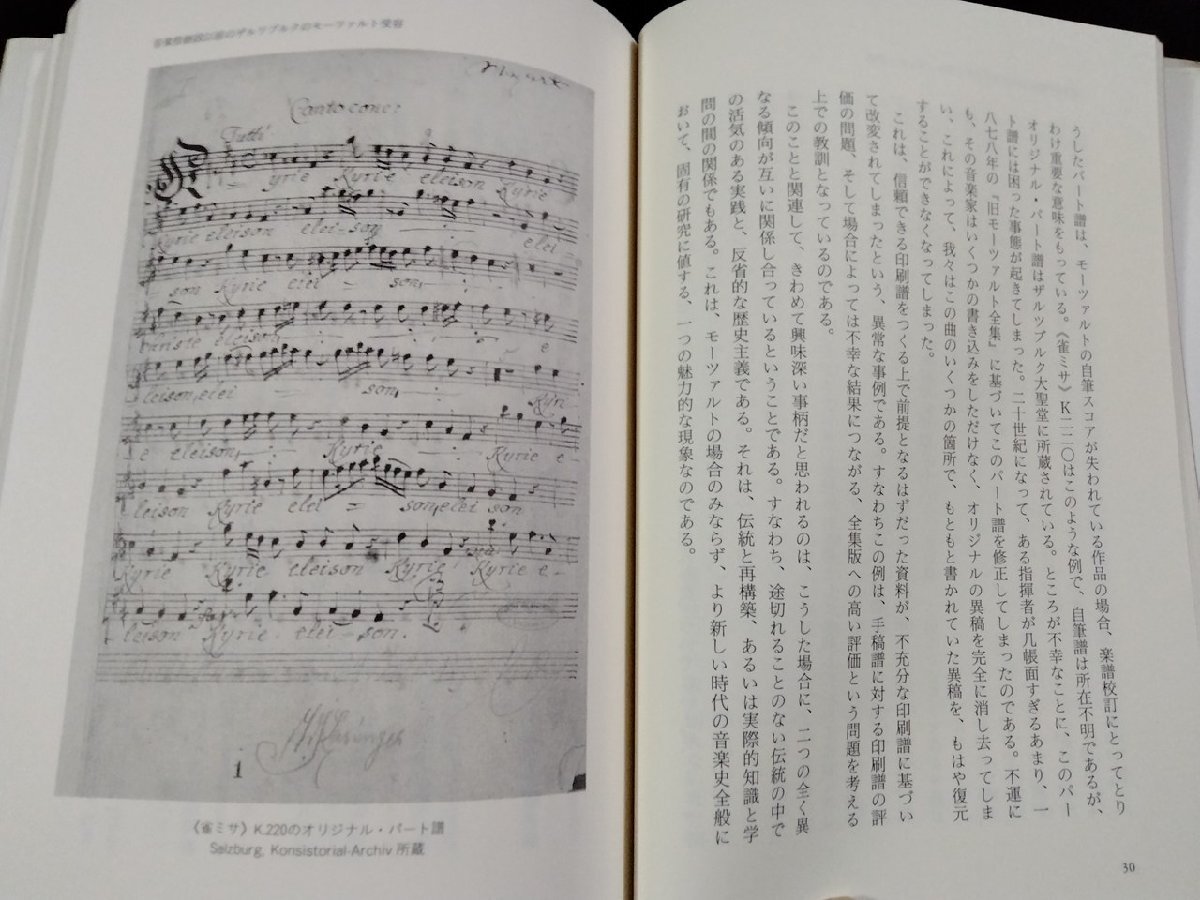 うしたパート譜は、モーツァルトの自筆スコアが失われている作品の場合、楽譜校訂にとってとり
わけ重要な意味をもっている。《雀ミサ》K二二〇はこのような例で、自筆譜は所在不明であるが、
オリジナル・パート譜はザルツブルク大聖堂に所蔵されている。ところが不幸なことに、このパー
ト譜には困った事態が起きてしまった。二十世紀になって、ある指揮者が几帳面すぎるあまり、一
八七八年の『旧モーツァルト全集』に基づいてこのパート譜を修正してしまったのである。不運に
も、その音楽家はいくつかの書き込みをしただけなく、オリジナルの異稿を完全に消し去ってしま
い、これによって、我々はこの曲のいくつかの箇所で、もともと書かれていた異稿を、もはや復元
することができなくなってしまった。
これは、信頼できる印刷譜をつくる上で前提となるはずだった資料が、不充分な印刷譜に基づい
て改変されてしまったという、異常な事例である。すなわちこの例は、手稿譜に対する印刷譜の評
価の問題、そして場合によっては不幸な結果につながる、全集版への高い評価という問題を考える
上での教訓となっているのである。
このことと関連して、きわめて興味深い事柄だと思われるのは、こうした場合に、二つの全く異
なる傾向が互いに関係し合っているということである。すなわち、途切れることのない伝統の中で
の活気のある実践と、反省的な歴史主義である。それは、伝統と再構築、あるいは実際的知識と学
問の間の関係でもある。これは、モーツァルトの場合のみならず、より新しい時代の音楽史全般に
おいて、固有の研究に値する、一つの魅力的な現象なのである。
30
以前のザルツブルクのモーツァルト受容
Canto conc:
Tutti
Kyrie Kyrie eleison Kyrie
Kyrie eleison elei-son elei
son Kyrie elei son
eleison e
leison, elei son, Kyri
e eleison, Kyrie Kyrie e-
leison Kyrie elei son, elei son
Kyrie Kyrie eleison Kyrie Kyrie e-
leison Kyrie elei-son.
1
《雀ミサ》K.220のオリジナル・パート譜
Salzburg, Konsistorial-Archiv 所蔵